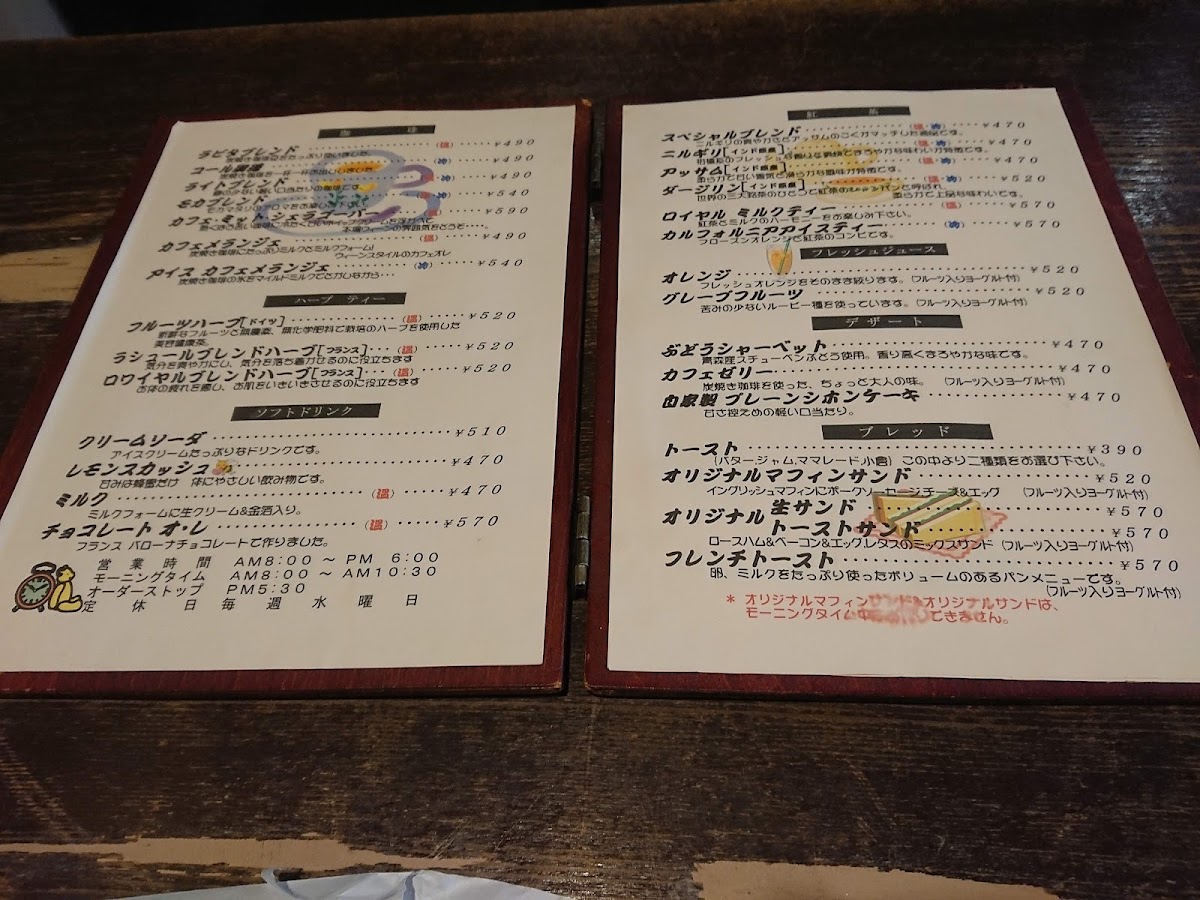 珈 琲
ラビタブレンド (温) ¥490
炭焼き珈琲豆をたっぷり使いました。
コール珈琲 (冷) ¥490
ライトブレンド (温) ¥490
モカブレンド (冷) ¥540
カフェ・ミッ シェラゴーバー ¥590
本場ウィーンの雰囲気をどうぞ…。
カフェメランジェ (温) ¥490
炭焼き珈琲にたっぷりミルクとミルクフォーム!
ウィーンスタイルのカフェオレ
アイス カフェメランジェ (冷) ¥540
炭焼き珈琲の氷をマイルドミルクでとかしながら…
ハーブ ティー
フルーツハーブ[ドイツ] (温) ¥520
新鮮なフルーツと無農薬、無化学肥料で栽培のハーブを使用した
美容健康茶。
ラシュールブレンドハーブ[フランス] (温) ¥520
気分を爽やかにし、気分を落ち着かせるのに役立ちます
ロワイヤルブレンドハーブ[フランス] (温) ¥520
お体の疲れを癒し、お肌をいきいきさせるのに役立ちます
ソフトドリンク
クリームソーダ ¥510
アイスクリームたっぷりなドリンクです。
レモンスカッシュ ¥470
甘みは蜂蜜だけ 体にやさしい飲み物です。
ミルク (温) ¥470
ミルクフォームに生クリーム&金箔入り。
チョコレート オ・レ (温) ¥570
フランス バローナチョコレートで作りました。
営業時間 AM8:00 ～ PM 6:00
モーニングタイム AM8:00 ～ AM10:30
オーダーストップ PM5:30
定 休 日 毎 週 水 曜 日
紅 茶
スペシャルブレンド (温・冷) ¥470
ニルギリの爽やかさとアッサムのこくがマッチした逸品です。
ニルギリ[インド原産] (温・冷) ¥470
アッサム[インド原産] (温) ¥470
柔らかで甘い香気と滑らかな風味が特徴です。
ダージリン[インド原産] (温・冷) ¥520
世界の三大銘茶のひとつで紅茶のシャンパンと呼ばれ、柔らかで上品な味わいです。
ロイヤル ミルクティー (温) ¥570
紅茶とミルクのハーモニーをお楽しみ下さい。
カルフォルニアアイスティー (冷) ¥570
フローズンオレンジと紅茶のコンビです。
フレッシュジュース
オレンジ ¥520
フレッシュオレンジをそのまま絞ります。(フルーツ入りヨーグルト付)
グレープフルーツ ¥520
苦みの少ないルービー種を使っています。(フルーツ入りヨーグルト付)
デザート
ぶどうシャーベット ¥470
青森産スチューベンぶどう使用。香り高くまろやかな味です。
カフェゼリー ¥470
炭焼き珈琲を使った、ちょっと大人の味。 (フルーツ入りヨーグルト付)
自家製 プレーンシホンケーキ ¥470
甘さ控えめの軽い口当たり。
ブレッド
トースト ¥390
(バタージャム,ママレード,小倉) この中より二種類をお選び下さい。
オリジナルマフィンサンド ¥520
イングリッシュマフィンにポークソーセージ,チーズ&エッグ (フルーツ入りヨーグルト付)
オリジナル 生サンド ¥570
トーストサンド ¥570
ロースハム&ベーコン&エッグ,レタスのミックスサンド (フルーツ入りヨーグルト付)
フレンチトースト ¥570
卵、ミルクをたっぷり使ったボリュームのあるパンメニューです。
(フルーツ入りヨーグルト付)
* オリジナルマフィンサンド、オリジナルサンドは、
モーニングタイム中 できません。